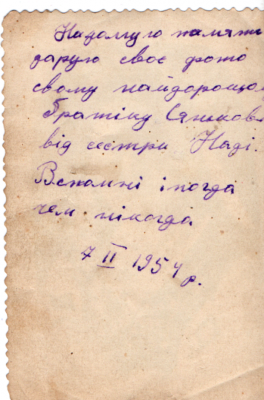 На долгую память
дарую своє фото
свому найдорощом
братіку Сяшков
від сестри Наді.
Вспомні іногда
чем нікогда
7 II 1954 р.